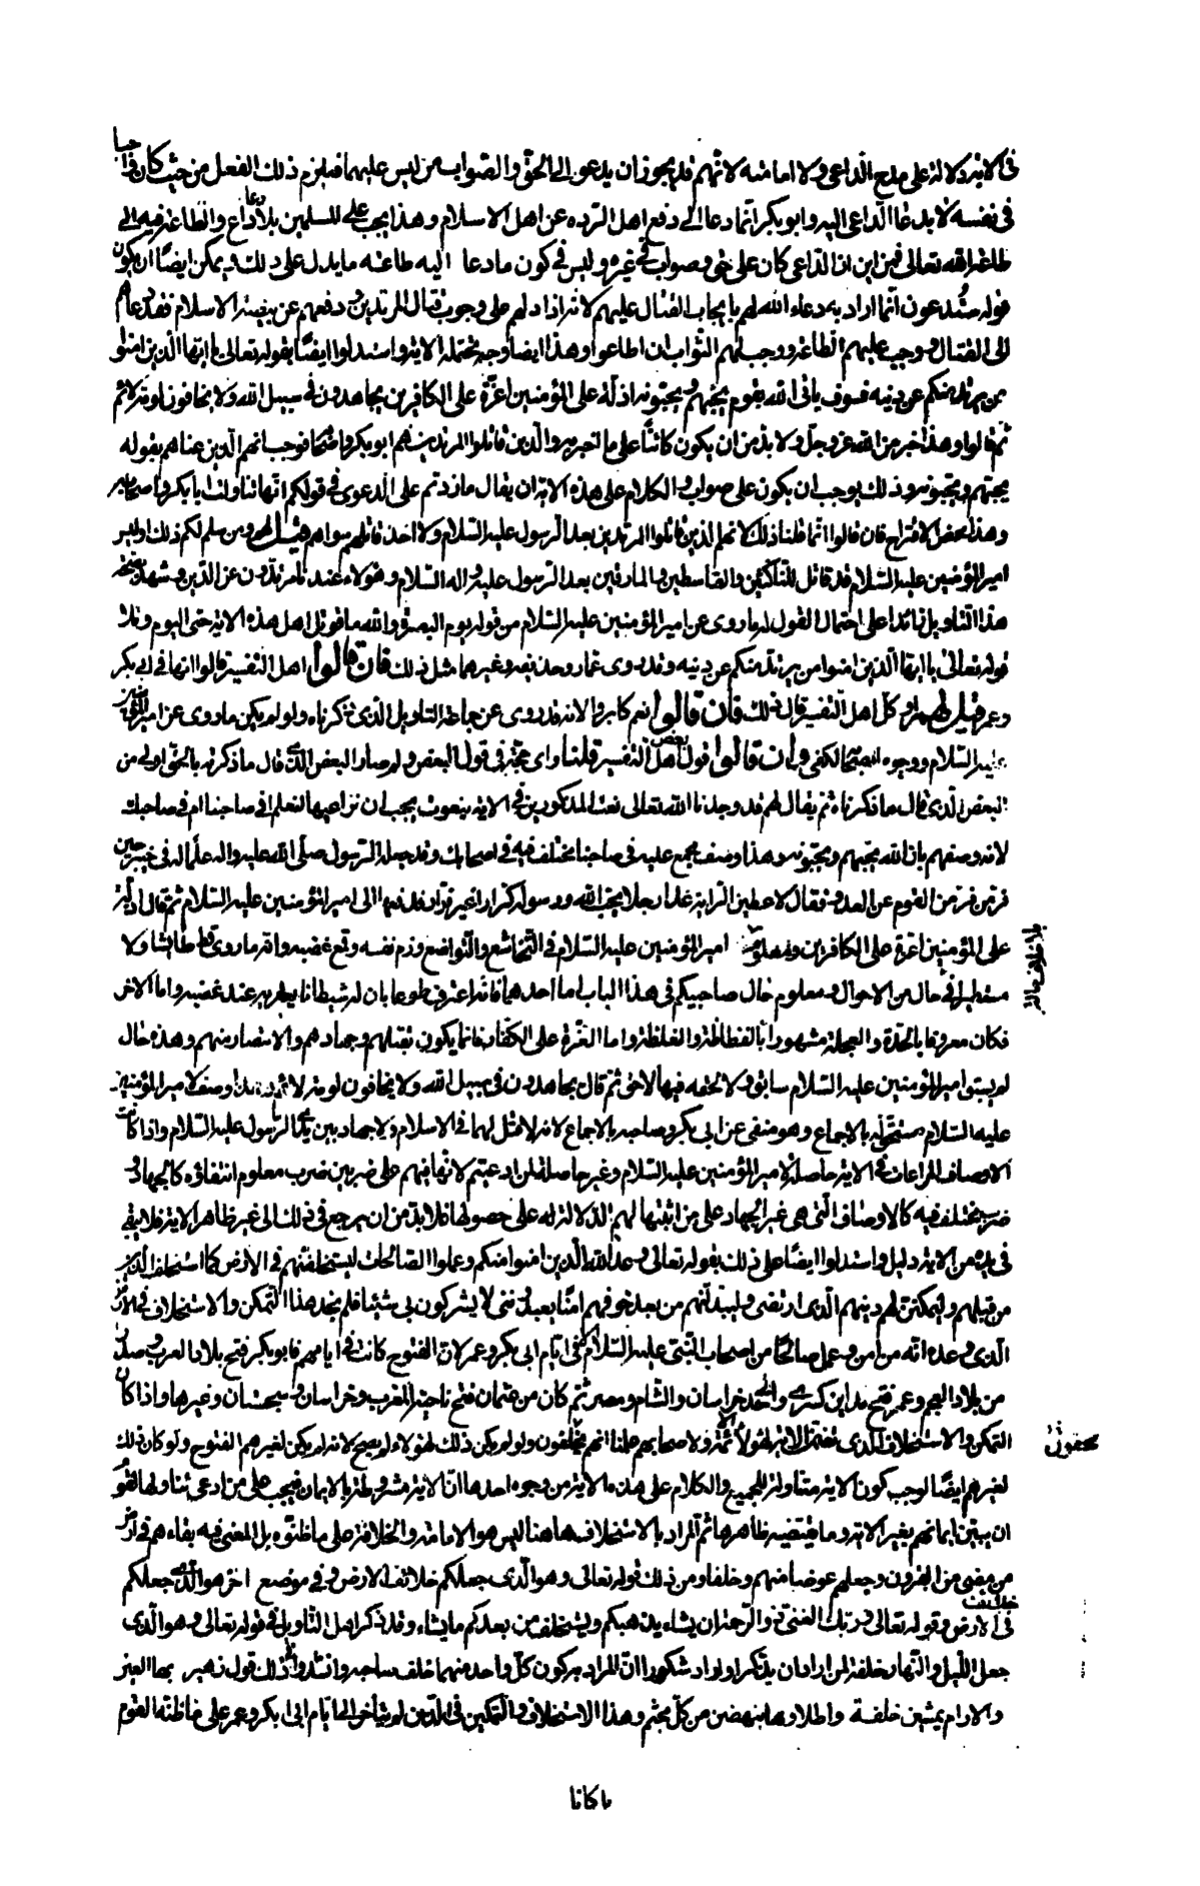 فى الاية دلالة على مدح الداعى ولا امامته لانهم قد يجوز ان يدعو الى الحق والصواب من ليس عليهما فيلزم ذلك الفعل من حيث كان واجبا
فى نفسه لا بدعاء الداعى اليه وابو بكر انما دعا الى دفع اهل الردة عن اهل الاسلام وهذا يجب على المسلمين بلا دعاء داع والطاعة فيه الى
طاعة الله تعالى فمن اين ان الداعى كان على حق وصواب فى غيره وليس فى كون ما دعا اليه طاعة ما يدل على ذلك ويمكن ايضا ان يكون
قوله ستدعون انما اراد به دعاء الله لهم بايجاب القتال عليهم لانه اذا دلهم على وجوب قتال المرتدين ودفعهم عن بيضة الاسلام فقد دعاهم
الى القتال ووجب عليهم الطاعة ووجب لهم الثواب ان اطاعوا وهذا ايضا وجه تحتمله الاية واستدلوا ايضا بقوله تعالى يا ايها الذين امنوا
من يرتد منكم عن دينه فسوف ياتى الله بقوم يحبهم ويحبونه اذلة على المؤمنين اعزة على الكافرين يجاهدون فى سبيل الله ولا يخافون لومة لائم
ثم قالوا وهذا خبر من الله عز وجل ولا بد من ان يكون كائنا على ما اخبر به والذين قاتلوا المرتدين هم ابو بكر واصحابه فوجب انهم الذين عناهم بقوله
يحبهم ويحبونه وذلك يوجب ان يكون على صواب والكلام على هذه الاية ان يقال ما زدتم على الدعوى فى قولكم انها تناولت ابا بكر واصحابه
وهذا محض الاقتراح فان قالوا انما قلنا ذلك لانهم الذين قاتلوا المرتدين بعد الرسول عليه السلام ولا احد قاتلهم سواهم قيل لهم ومن سلم لكم ذلك اوليس
امير المؤمنين عليه السلام قد قاتل الناكثين والقاسطين والمارقين بعد الرسول عليه واله السلام وهؤلاء عندنا مرتدون عن الدين ويشهد بصحة
هذا التاويل زائدا على احتمال القول له ما روى عن امير المؤمنين عليه السلام من قوله يوم البصرة والله ما قوتل اهل هذه الاية حتى اليوم وتلا
قوله تعالى يا ايها الذين امنوا من يرتد منكم عن دينه وقد روى عمار وحذيفة وغيرهما مثل ذلك فان قالوا اهل التفسير قالوا انها فى ابى بكر
وعمر قيل لهم او كل اهل التفسير قال ذلك فان قالوا نعم كابروا لانه قد روى عن جماعة التاويل الذى ذكرناه ولو لم يكن ما روى عن امير المؤمنين
عليه السلام ووجوه الصحابة لكفى وان قالوا قول بعض اهل التفسير قلنا واى حجة فى قول البعض ولم صار البعض الذى قال ما ذكرته بالحق اولى من
البعض الذى قال ما ذكرناه ثم يقال لهم قد وجدنا الله تعالى نعت المذكورين فى الاية بنعوت يجب ان نراعيها لنعلم افى صاحبنا ام فى صاحبك
لانه وصفهم بان الله يحبهم ويحبونه وهذا وصف مجمع عليه فى صاحبنا مختلف فيه فى اصحابك وقد جعله الرسول صلى الله عليه واله علما له فى خيبر حين
فر من فر من القوم عن العدو فقال لاعطين الراية غدا رجلا يحب الله ورسوله كرارا غير فرار فدفعها الى امير المؤمنين عليه السلام ثم قال اذلة
على المؤمنين اعزة على الكافرين ومعلوم بلا خلاف حالة امير المؤمنين عليه السلام فى التخاشع والتواضع وذم نفسه وقمع غضبه وانه ما روى قط طائشا ولا
مستطيرا فى حال من الاحوال ومعلوم حال صاحبيكم فى هذا الباب اما احدهما فانه اعترف طوعا بان له شيطانا يعتريه عند غضبه واما الاخر
فكان معروفا بالحدة والعجلة مشهورا بالفظاظة والغلظة واما العزة على الكفار فانما يكون بقتلهم وجهادهم والانتصار منهم وهذه حال
لم يسبق امير المؤمنين عليه السلام سابق ولا لحقه فيها لاحق ثم قال يجاهدون فى سبيل الله ولا يخافون لومة لائم وهذا وصف امير المؤمنين
عليه السلام مستحق له بالاجماع وهو منفى عن ابى بكر وصاحبه بالاجماع لانه لا قتيل لهما فى الاسلام ولا جهاد بين يدى الرسول عليه السلام واذا كانت
الاوصاف المراعات فى الاية حاصلة لامير المؤمنين عليه السلام وغير حاصلة لمن ادعيتم لانها فيهم على ضربين ضرب معلوم انتفاؤه كالجهاد و
ضرب مختلف فيه كالاوصاف التى هى غير الجهاد على من اثبتها لهم الدلالة له على حصولها فلا بد من ان يرجع فى ذلك الى غير ظاهر الاية فلا يبقى
فى يده من الاية دليل واستدلوا ايضا على ذلك بقوله تعالى وعد الله الذين امنوا منكم وعملوا الصالحات ليستخلفنهم فى الارض كما استخلف الذين
من قبلهم وليمكنن لهم دينهم الذى ارتضى وليبدلنهم من بعد خوفهم امنا يعبدوننى لا يشركون بى شيئا فلم نجد هذا التمكن والاستخلاف فى الارض
الذى وعده انه من امن وعمل صالحا من اصحاب النبى عليه السلام الا فى ايام ابى بكر وعمر لان الفتوح كانت فى ايامهم فابو بكر فتح بلاد العرب وصدرا
من بلاد العجم وعمر فتح مداين كسرى والى حد خراسان والشام ومصر ثم كان من عثمان فتح ناحية المغرب وخراسان وسجستان وغيرها واذا كان
التمكن والاستخلاف الذى تضمنتهما الاية لهؤلاء الائمة ولاصحابهم علمنا انهم محقون ولو لم يكن ذلك لهؤلاء لم يصح لانه لم يكن لغيرهم الفتوح ولو كان ذلك محقون
لغيرهم ايضا لوجب كون الاية متناولة للجميع والكلام على هذه الاية من وجوه احدها ان الاية مشروطة بالايمان فيجب على من ادعى تناولها لقوم
ان يبين ايمانهم بغير الاية وما يقتضيه ظاهرها ثم المراد بالاستخلاف هاهنا ليس هو الامامة والخلافة على ما ظنوه بل المعنى فيه بقاءهم فى ارض
من مضى من القرون وجعلهم عوضا منهم وخلفا ومن ذلك قوله تعالى وهو الذى جعلكم خلائف الارض وفى موضع اخر هو الذى جعلكم خلائف
فى الارض وقوله تعالى وربك الغنى ذو الرحمة ان يشاء يذهبكم ويستخلف من بعدكم ما يشاء وقد ذكر اهل التاويل فى قوله تعالى وهو الذى
جعل الليل والنهار خلفة لمن اراد ان يذكر او اراد شكورا ان المراد به كون كل واحد منهما خلف صاحبه وانشدوا فى ذلك قول زهير بها العين
والارام يمشين خلفة واطلاؤها ينهضن من كل مجثم وهذا الاستخلاف والتمكين فى الدين لم يتاخر الى ايام ابى بكر وعمر على ما ظنه القوم
ما كانا